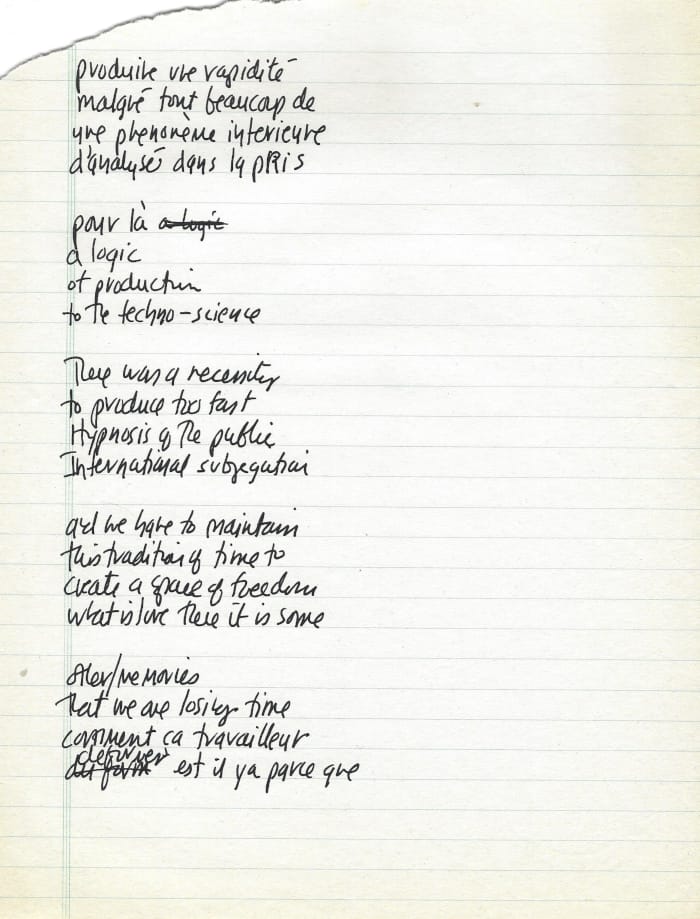 produire une rapidité
malgré tout beaucoup de
une phenomème interieure
d'analysé dans la pRis
pour là a logic
a logic
of production
to the techno-science
There was a necessity
to produce too fast
Hypnosis of the public
International subjegation
and we have to maintain
this tradition of time to
create a space of freedom
what is love there it is some
other/memories
that we are losing time
comment ça travailleur
est il ya parce que